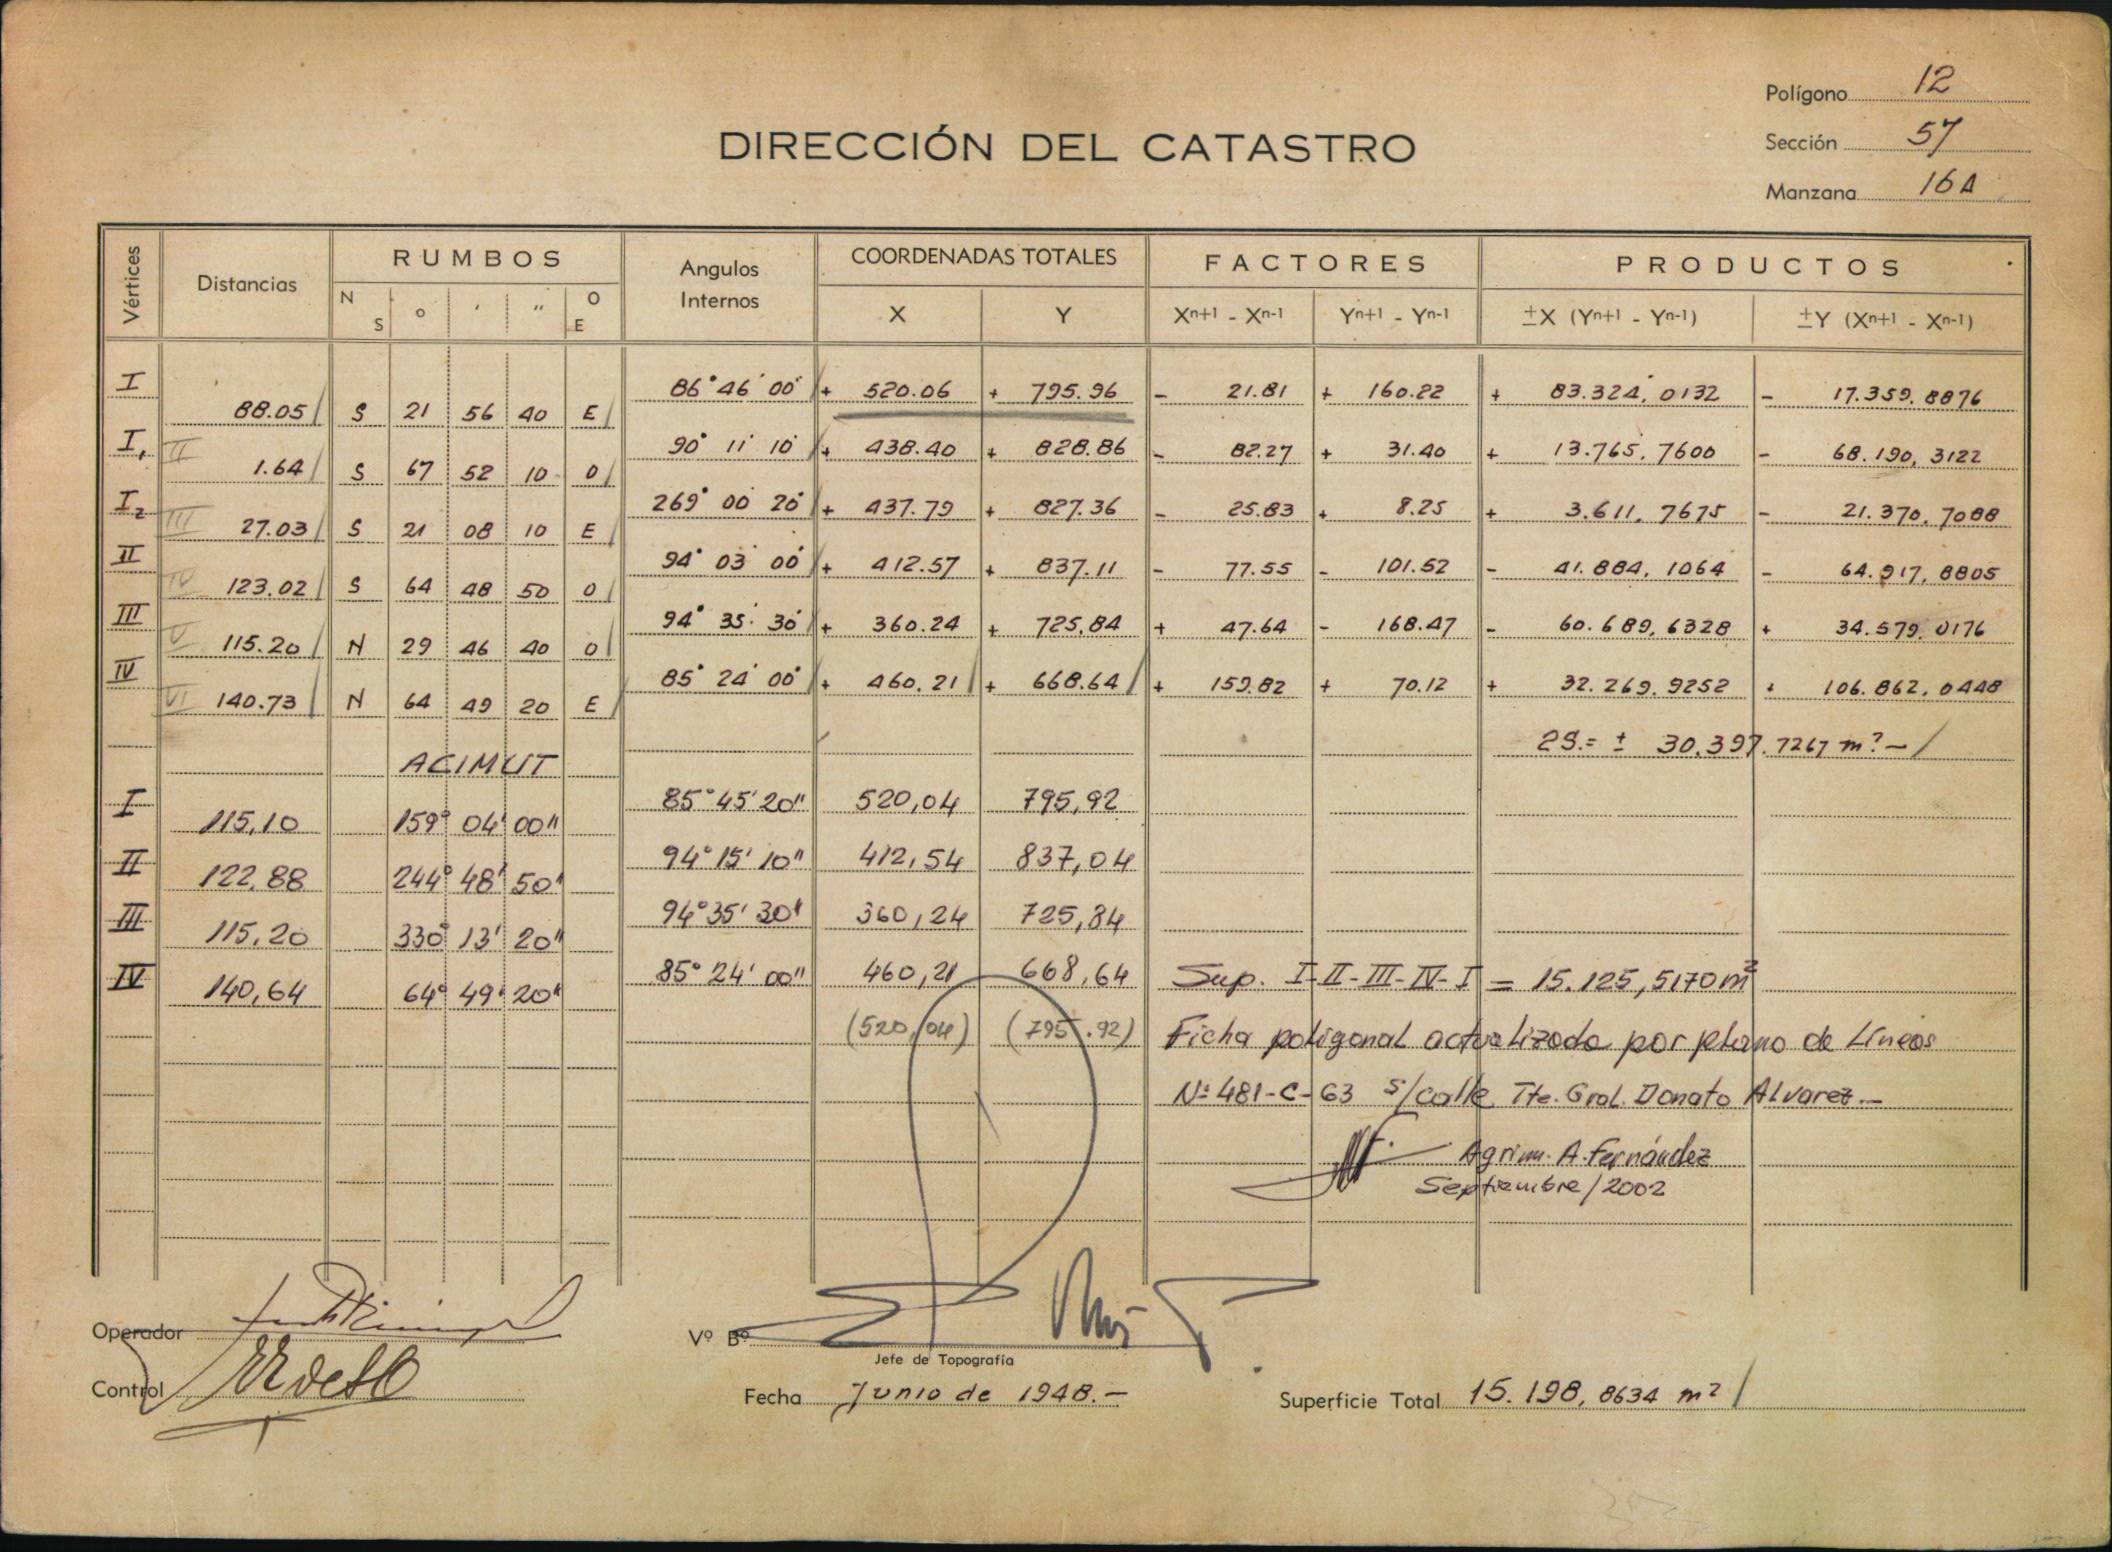 Polígono 12
DIRECCIÓN DEL CATASTRO
Sección 57
Manzana 16A
Vértices Distancias RUMBOS Angulos Internos COORDENADAS TOTALES FACTORES PRODUCTOS
N S o ′ ″ O E X Y Xn+1 - Xn-1 Yn+1 - Yn-1 ±X (Yn+1 - Yn-1) ±Y (Xn+1 - Xn-1)
I 86° 46' 00" + 520.06 + 795.96 - 21.81 + 160.22 + 83.324,0132 - 17.359.8876
88.05 S 21 56 40 E
I1 II 90° 11' 10" + 438.40 + 828.86 - 82.27 + 31.40 + 13.765,7600 - 68.190,3122
1.64 S 67 52 10 O
I2 III 269° 00' 20" + 437.79 + 827.36 - 25.83 + 8.25 + 3.611,7675 - 21.370,7088
27.03 S 21 08 10 E
II IV 94° 03' 00" + 412.57 + 837.11 - 77.55 - 101.52 - 41.884,1064 - 64.917,8805
123.02 S 64 48 50 O
III V 94° 35' 30" + 360.24 + 725,84 + 47.64 - 168.47 - 60.689,6328 + 34.579,0176
115.20 N 29 46 40 O
IV VI 85° 24' 00" + 460.21 + 668.64 + 159.82 + 70.12 + 32.269.9252 + 106.862,0448
140.73 N 64 49 20 E
2S.= ± 30.397.7267 m² -
ACIMUT
I 85° 45' 20" 520,04 795,92
115,10 159° 04' 00"
II 94° 15' 10" 412,54 837,04
122,88 244° 48' 50"
III 94° 35' 30" 360,24 725,84
115,20 330° 13' 20"
IV 85° 24' 00" 460,21 668,64 Sup. I-II-III-IV-I = 15.125,5170 m²
140,64 64° 49' 20"
(520,04) (795.92) Ficha poligonal actualizada por plano de Líneas
Nº 481-C-63 s/calle Tte. Gral. Donato Alvarez.-
Agrim. A. Fernández
Septiembre/2002
Operador
Vº Bº
Jefe de Topografía
Control
Fecha Junio de 1948.-
Superficie Total 15.198,8634 m²